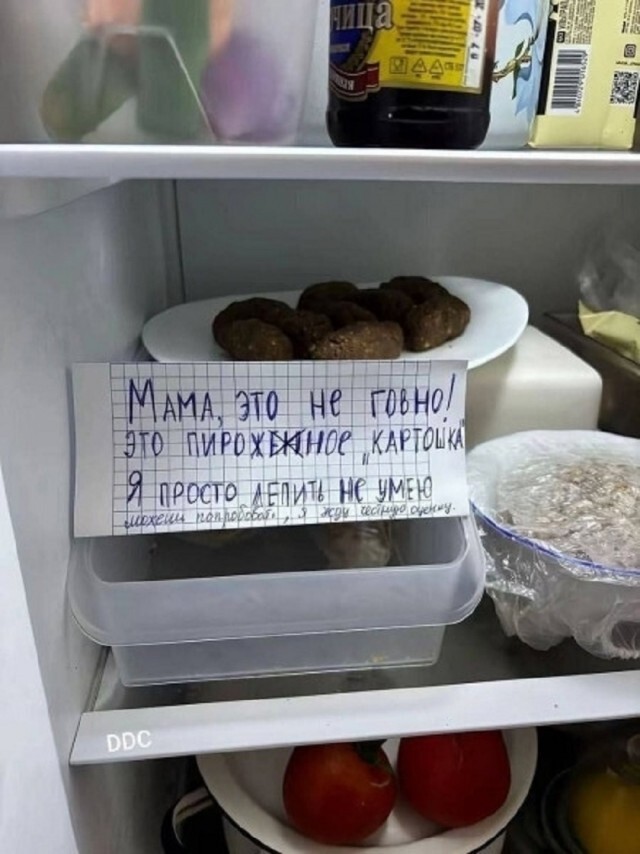 ЧИЦА
МАМА, ЭТО НЕ ГОВНО!
ЭТО ПИРОЖЕНОЕ „КАРТОШКА"
Я ПРОСТО ЛЕПИТЬ НЕ УМЕЮ
можешь попробовать, я жду честную оценку.
DDC